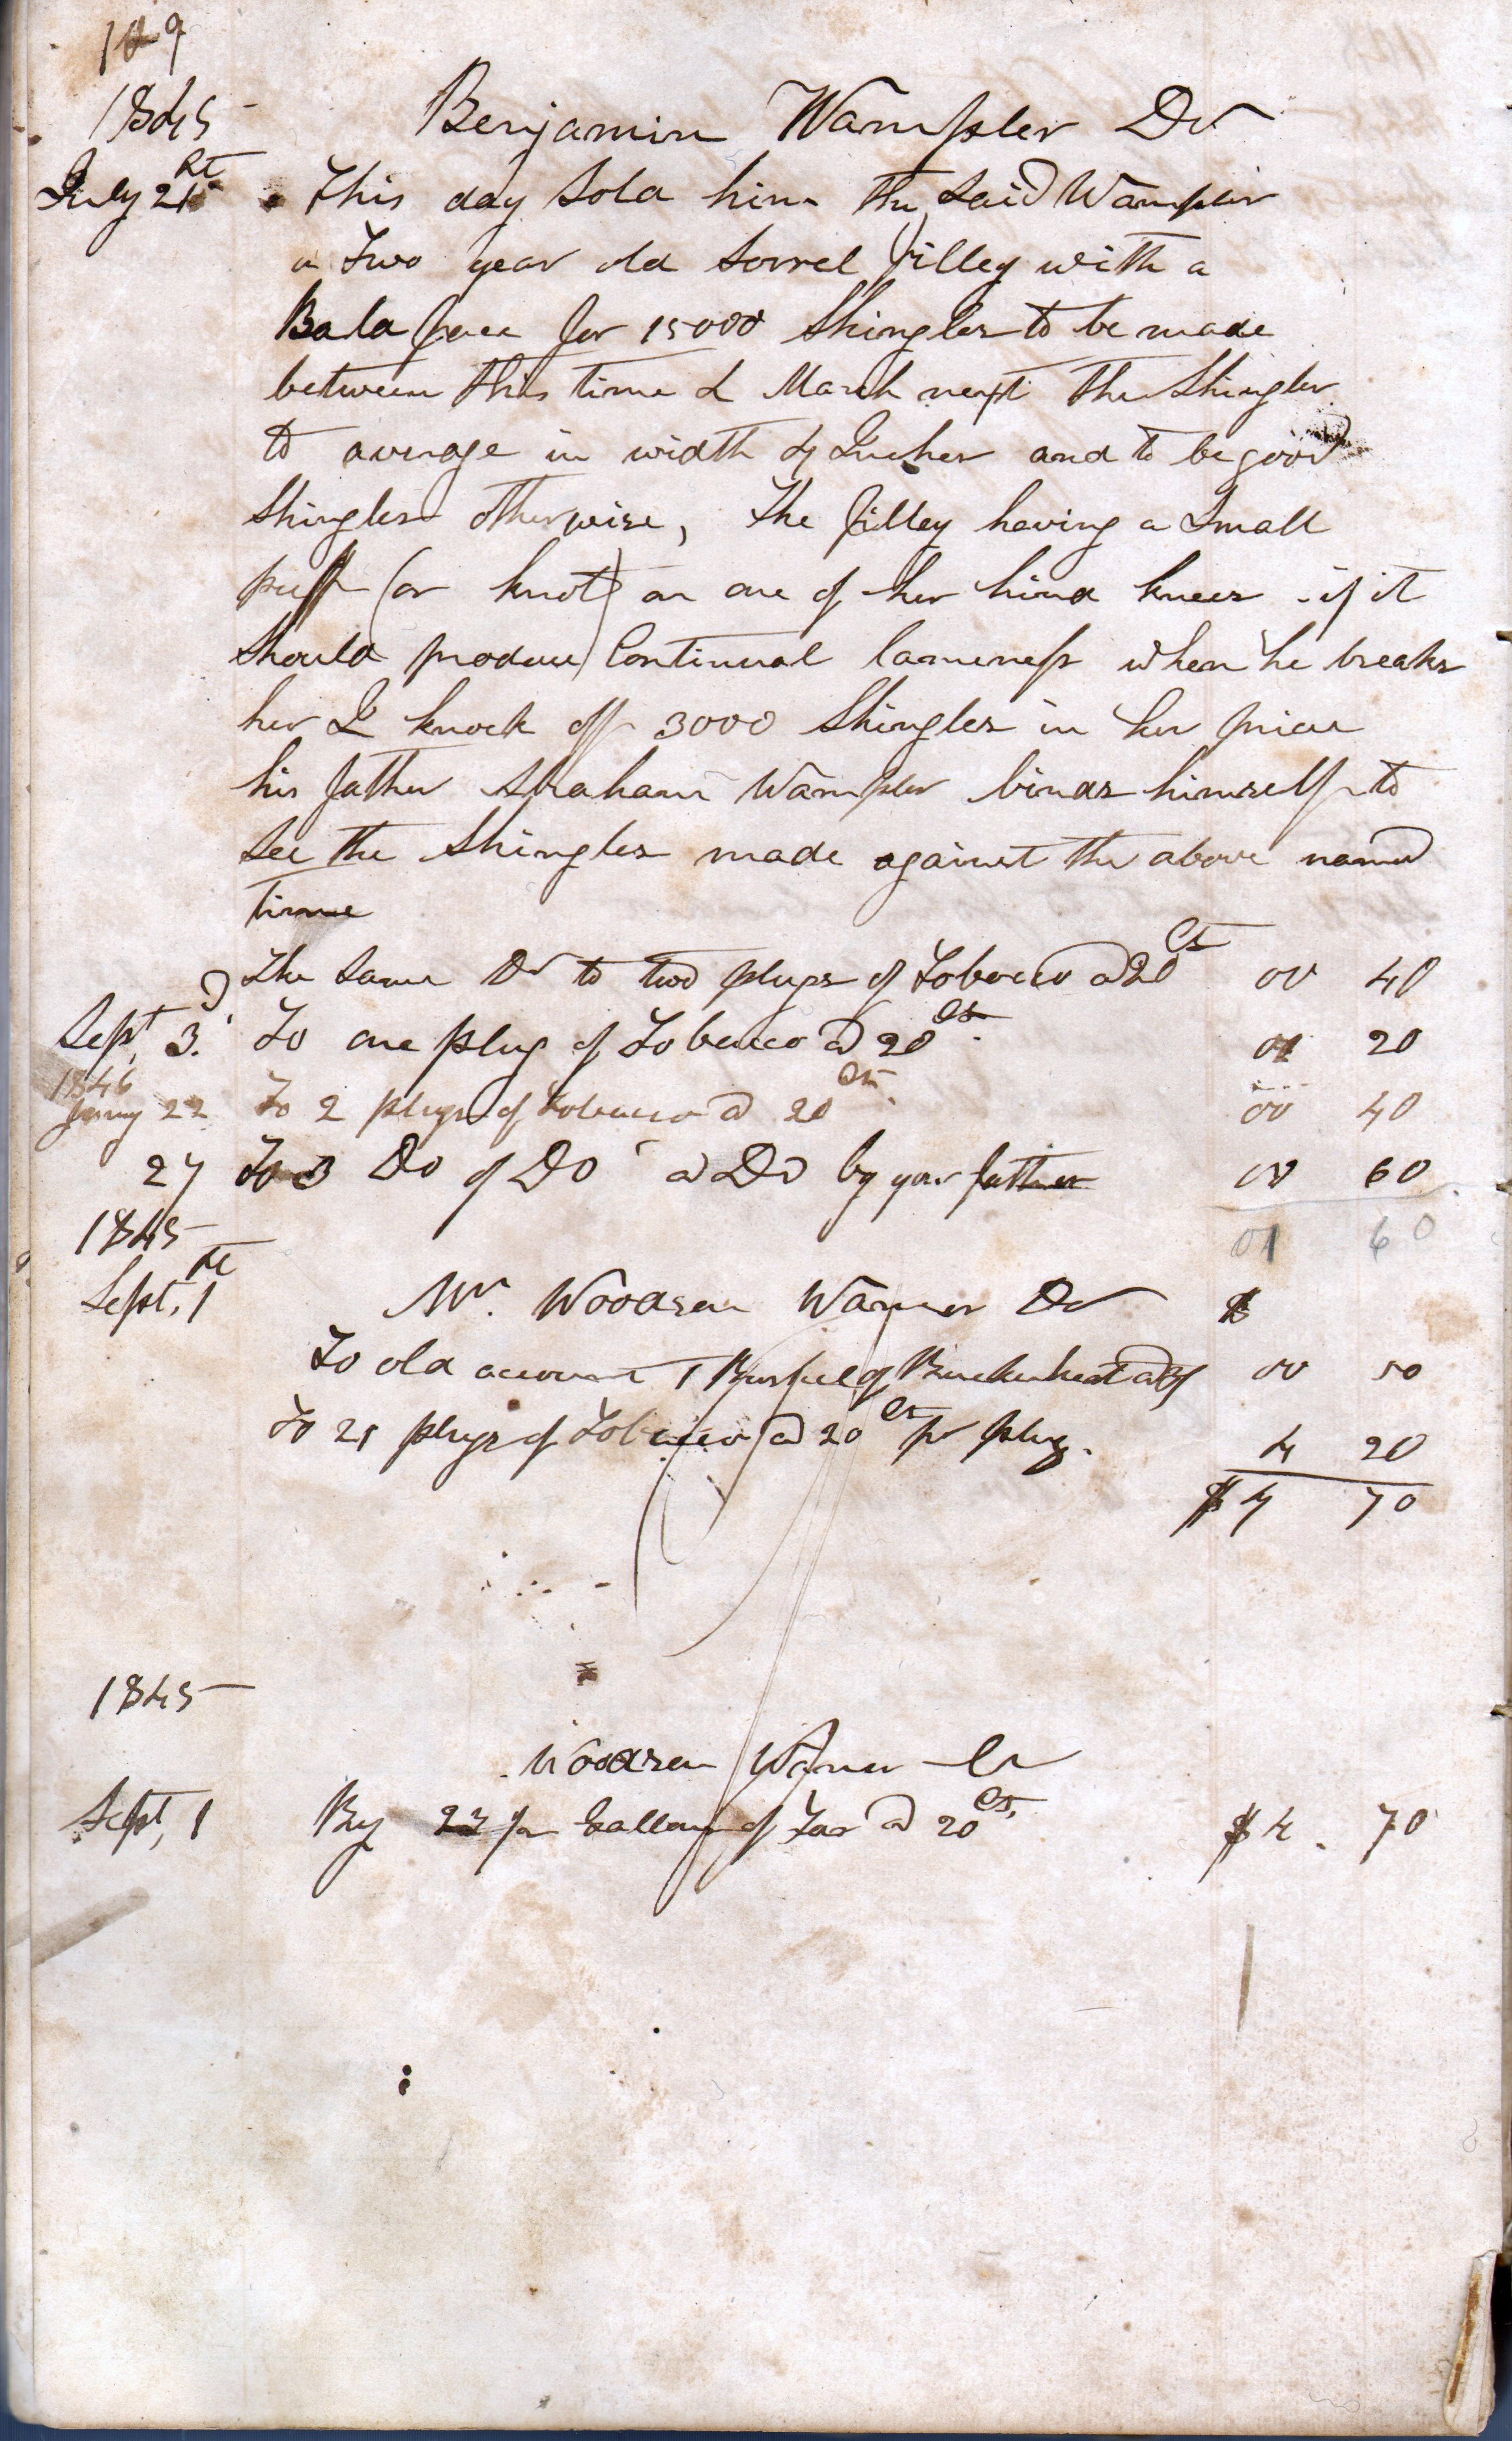 109
1845
Benjamin Wampler Dr
July 21st This day Sold him the said Wampler
a Two year old Sorrel filley with a
Bald face for 15000 Shingles to be made
between this time & March next the Shingles
to average in width 4 Inches and to be good
Shingles otherwise, The filley having a Small
puff (or knot) on one of her hind knees - if it
Should produce Continual lameness when he breaks
her I knock off 3000 Shingles in her price
his father Abraham Wampler binds himself to
See the Shingles made against the above named
time
The Same Dr to two plugs of Tobacco @ 20 Cts 00 40
Sept. 3d To one plug of Tobacco @ 20 Cts. 00 20
1846
Jany 22 To 2 plugs of Tobacco @ 20 Cts. 00 40
27 To 3 Do of Do @ Do by your father 00 60
01 60
1845
Sept. 1st Mr. Woodson Warner Dr $
To old account 1 Bushel of Buckwheat 00 50
To 21 plugs of Tobacco @ 20 Cts pr plug. 4 20
$ 4 70
1845
Woodson Warner Cr
Sept, 1 By Gallons of Tar @ 20 Cts, $ 4. 70